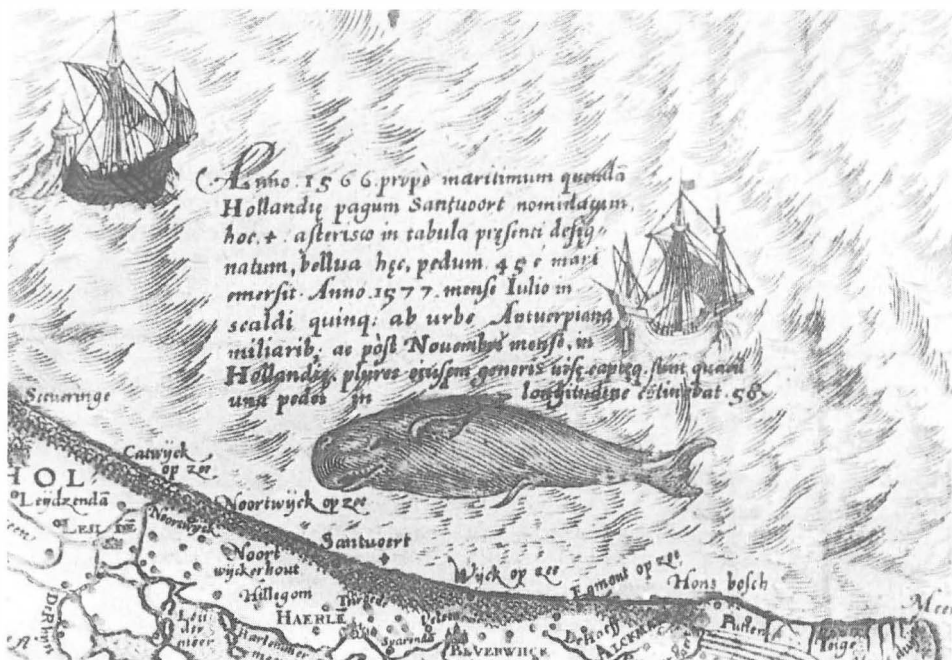 Anno. 1566. propè maritimum quendā
Hollandię pagum Santuoort nominatum,
hoc. + . asterisco in tabula pręsenci desig-
natum, bellua hęc, pedum. 45 e mari
emersit. Anno. 1577. mense Iulio in
scaldi quinq; ab urbe Antuerpiana
miliarib; ac pòst Novembri mense, in
Hollandię. plures eiusem generis uisę captęq. sunt quarū
una pedes in longitudine continebat. 58.
Sceueringe
Catwijck
op zee
HOL
Leijdzendā
LEIDE
Noortwijck op zee
Noortwyck
Noort
wijckerhout
Santuoert
Hillegom
HAERLE
Wijck op zee
Egmont op zee
Hons bosch
Sparenda
Velsen
BEVERWIICK
ALCKM
Puttem